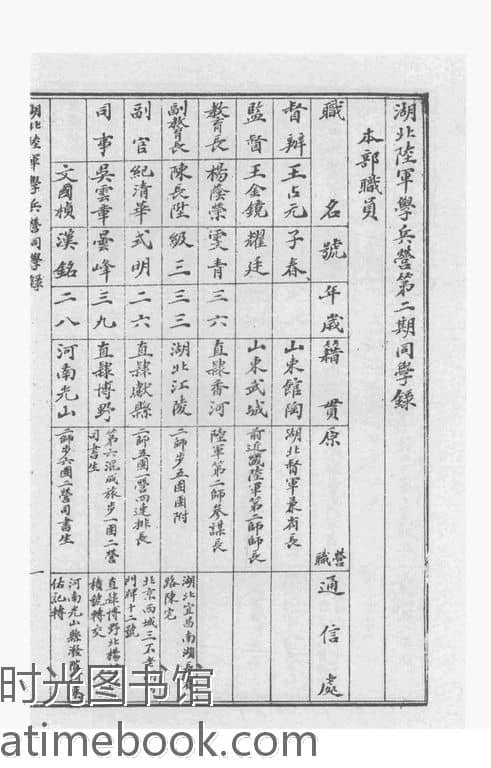 湖北陸軍學兵營第二期同學錄
本部職員
職 名 號 年歲 籍貫 原營職 通信處
督辦 王占元 子春 山東館陶 湖北督軍兼省長
監督 王金鏡 耀廷 山東武城 前近畿陸軍第二師師長
教育長 楊蔭榮 雯青 三六 直隸香河 陸軍第二師參謀長
副教育長 陳長陞 級三 三三 湖北江陵 二師步五團團附 湖北宜昌南湖 路陳宅
副官 紀清華 式明 二六 直隸獻縣 二師五團一營四連排長 北京西城三不老 門牌十二號
司事 吳雲章 曇峰 三九 直隸博野 第六混成旅步一團二營司書生 直隸博野北楊 積號轉交
文國楨 漢銘 二八 河南光山 二師步六團二營司書生 河南光山縣潑陂 估記轉
湖北陸軍學兵營同學錄
一
时光图书馆
atimebook.com